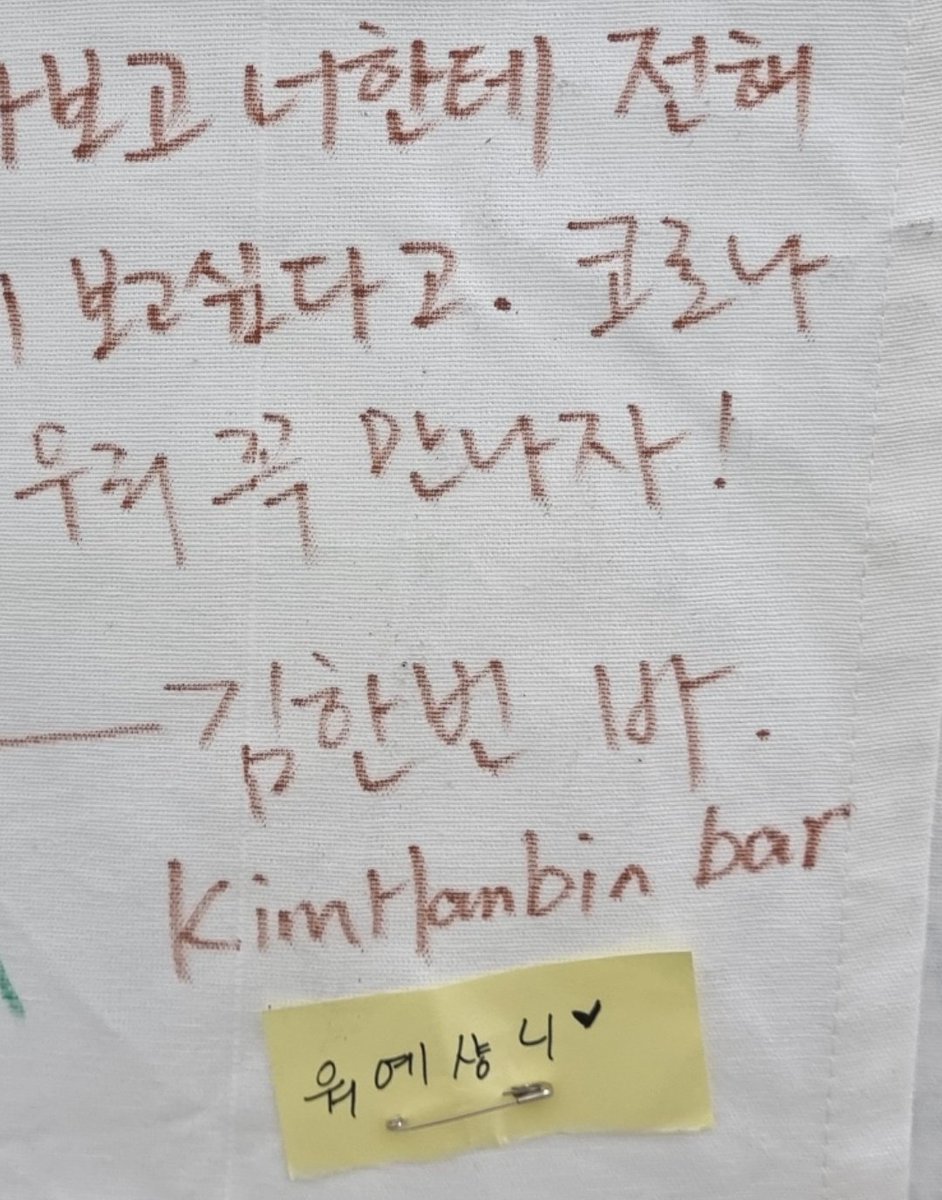 보고 너한테 전해
보고싶다고. 코로나
우리 꼭 만나자!
—김한번 바.
KimHanbin bar
워 예 샹 니♥